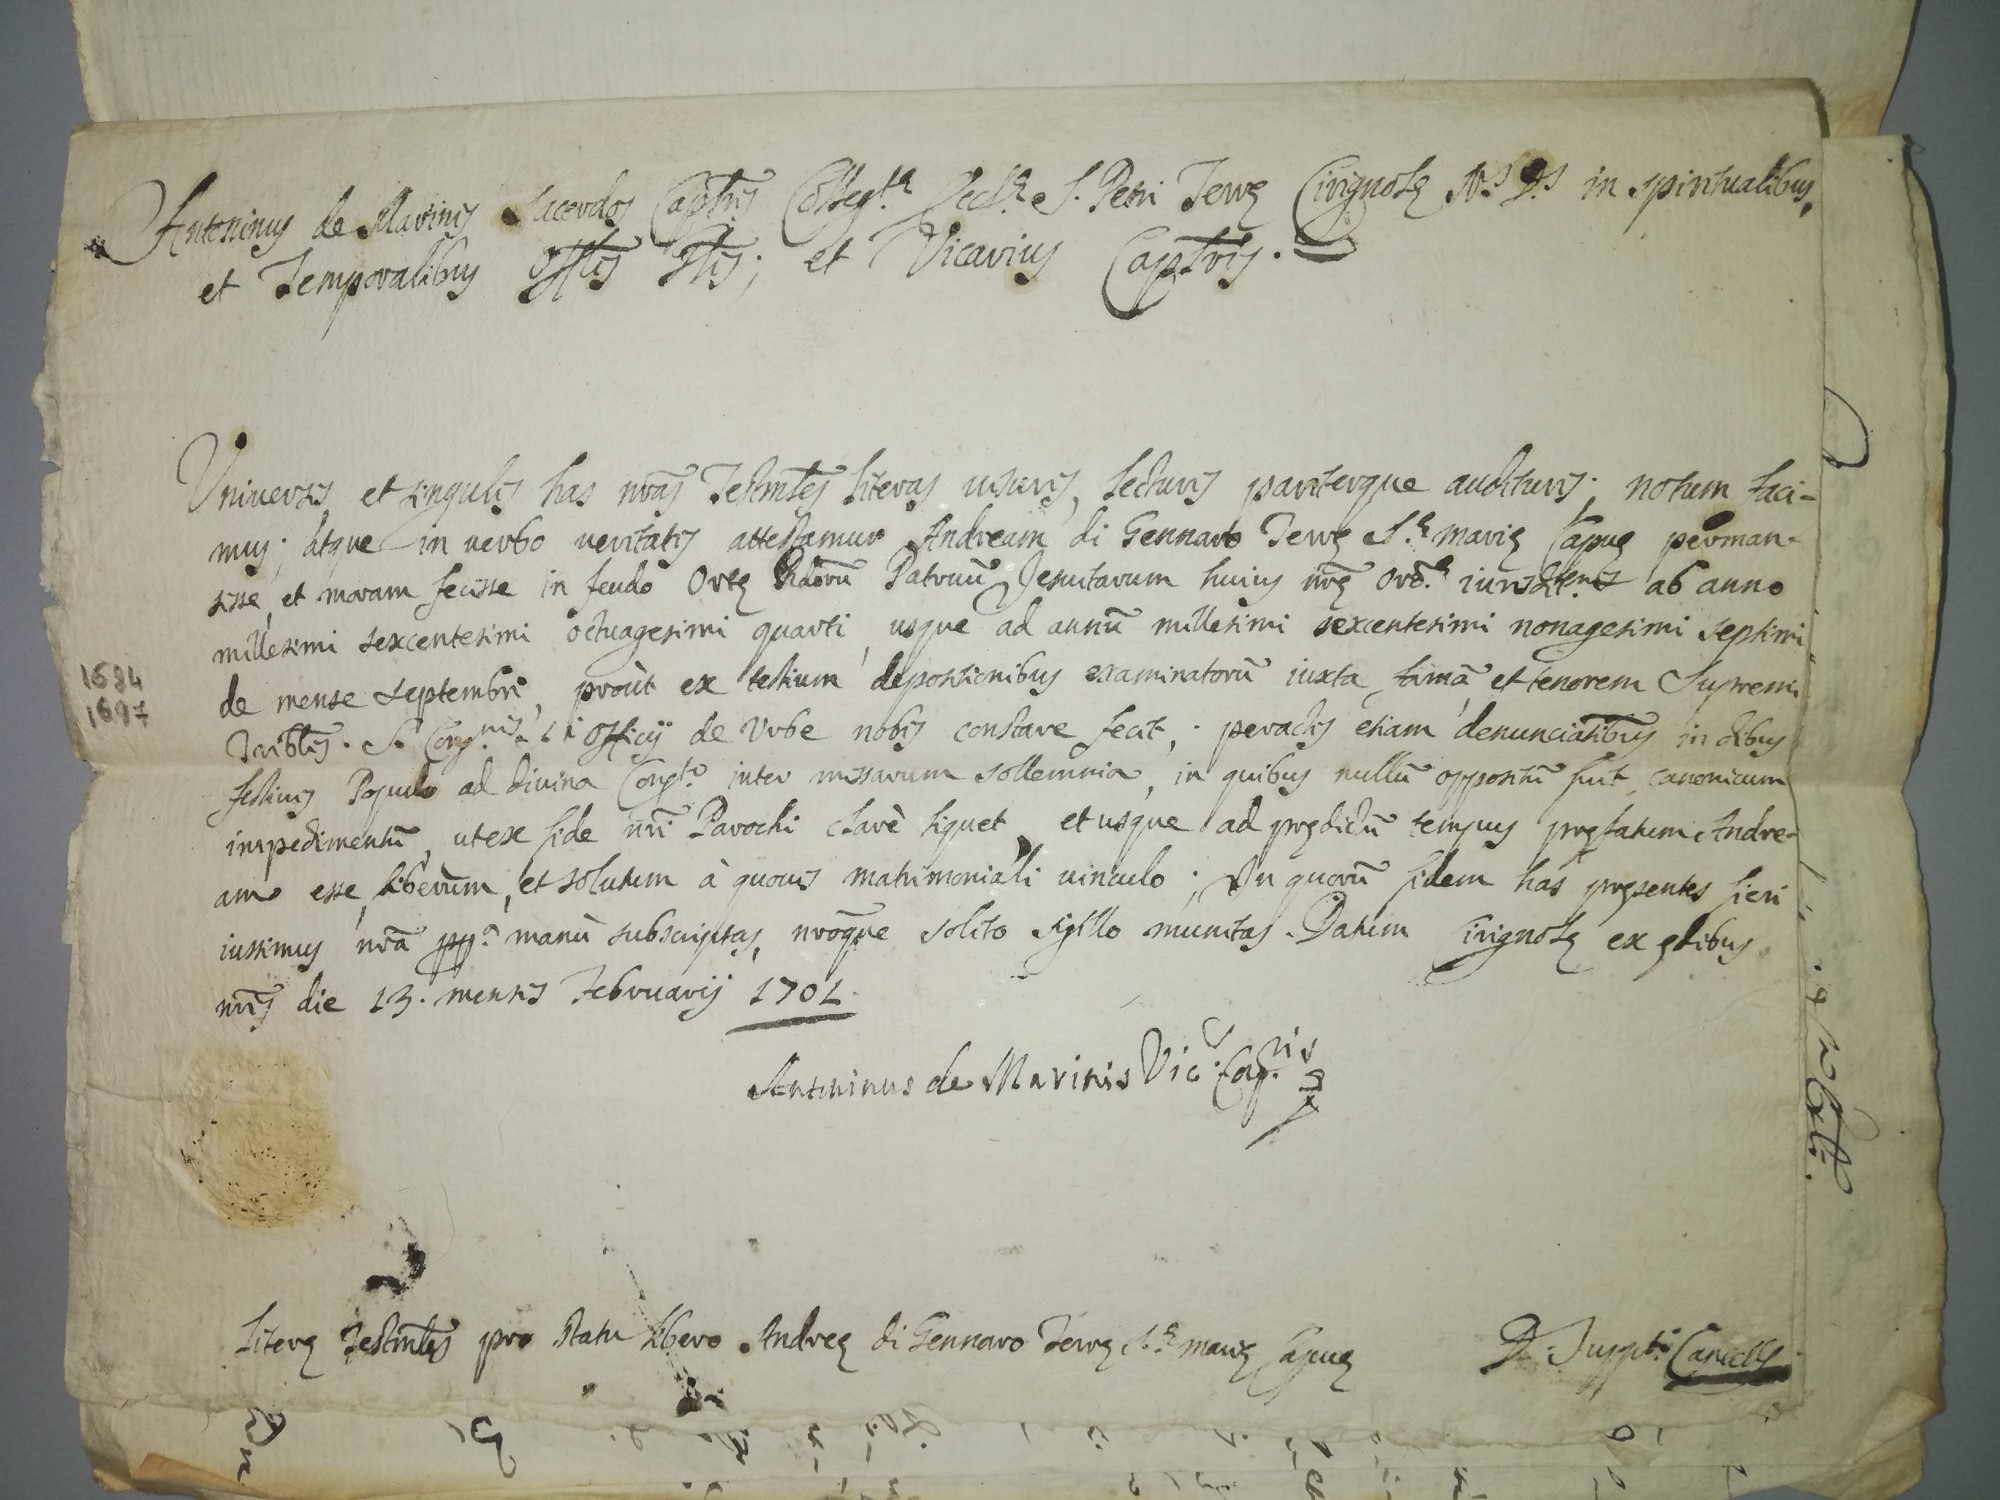 Antoninus de Marinis Sacerdos Capłris Collegtę Eccłę S. Petri Terrę Cirignolę in spiritualibus,
et Temporalibus Offłis Głis; et Vicarius Capłris.
Universis et singulis has nrãs Testimłes literas visuris, lecturis pariterque audituris; notum faci-
mus; atque in verbo veritatis attestamur Andream di Gennaro Terrę S.ę Marię Capuę perman-
sisse, et moram fecisse in feudo Ortę Rdorũ Patruũ Jesuitarum huius nrę Ord.ę iurisdit.nis ab anno
millesimi sexcentesimi octuagesimi quarti, usque ad annũ millesimi sexcentesimi nonagesimi septimi
de mense septembri, proùt ex testium depositionibus examinatorũ iuxta formã et tenorem Supremi
Tribłis. S. Cong.nis S.ti Officij de Urbe nobis constare fecit; peractis etiam denunciatibus in dibus
festivis Populo ad divina Congto inter missarum sollemnia, in quibus nullũ oppositũ fuit canonicum
impedimentũ, ut ex fide nrĩ Parochi clarè liquet, et usque ad prędictũ tempus pręfatum Andre-
am esse liberum, et solutum à quovis matrimoniali vinculo; In quorũ fidem has pręsentes fieri
iussimus nrã ppã manũ subscriptas, nrõque solito sigillo munitas. Datum Cirignolę ex ędibus
nrĩs die 13. mensis Februarij 1701
1684
1697
Antoninus de Marinis Vic. Cap.ris
Literę Testimłes pro statu libero Andreę di Gennaro Terrę S.ę Marię Capuę
Cancells